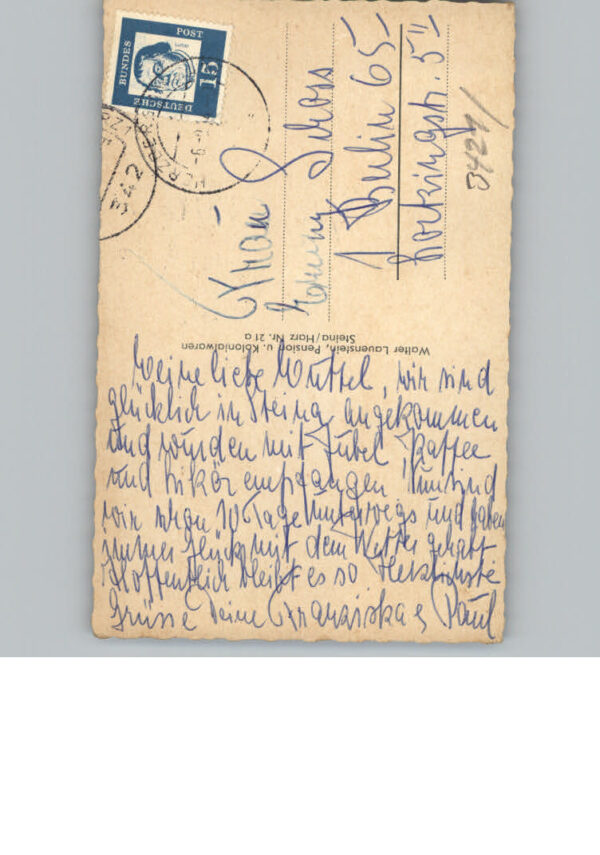 DEUTSCHE
BUNDES
POST
15
342
Frau
1 Berlin 65
Lortzingstr. 5 II
3424/
Walter Lauenstein, Pension u. Kolonialwaren
Steina/Harz Nr. 21a
Meine liebe Muttel, wir sind
glücklich in Steina angekommen
und wurden mit Jubel, Kaffee
und Likör empfangen. Nun sind
wir schon 10 Tage unterwegs und haben
immer Glück mit dem Wetter gehabt
Hoffentlich bleibt es so Herzlichste
Grüsse Deine Franziska & Paul